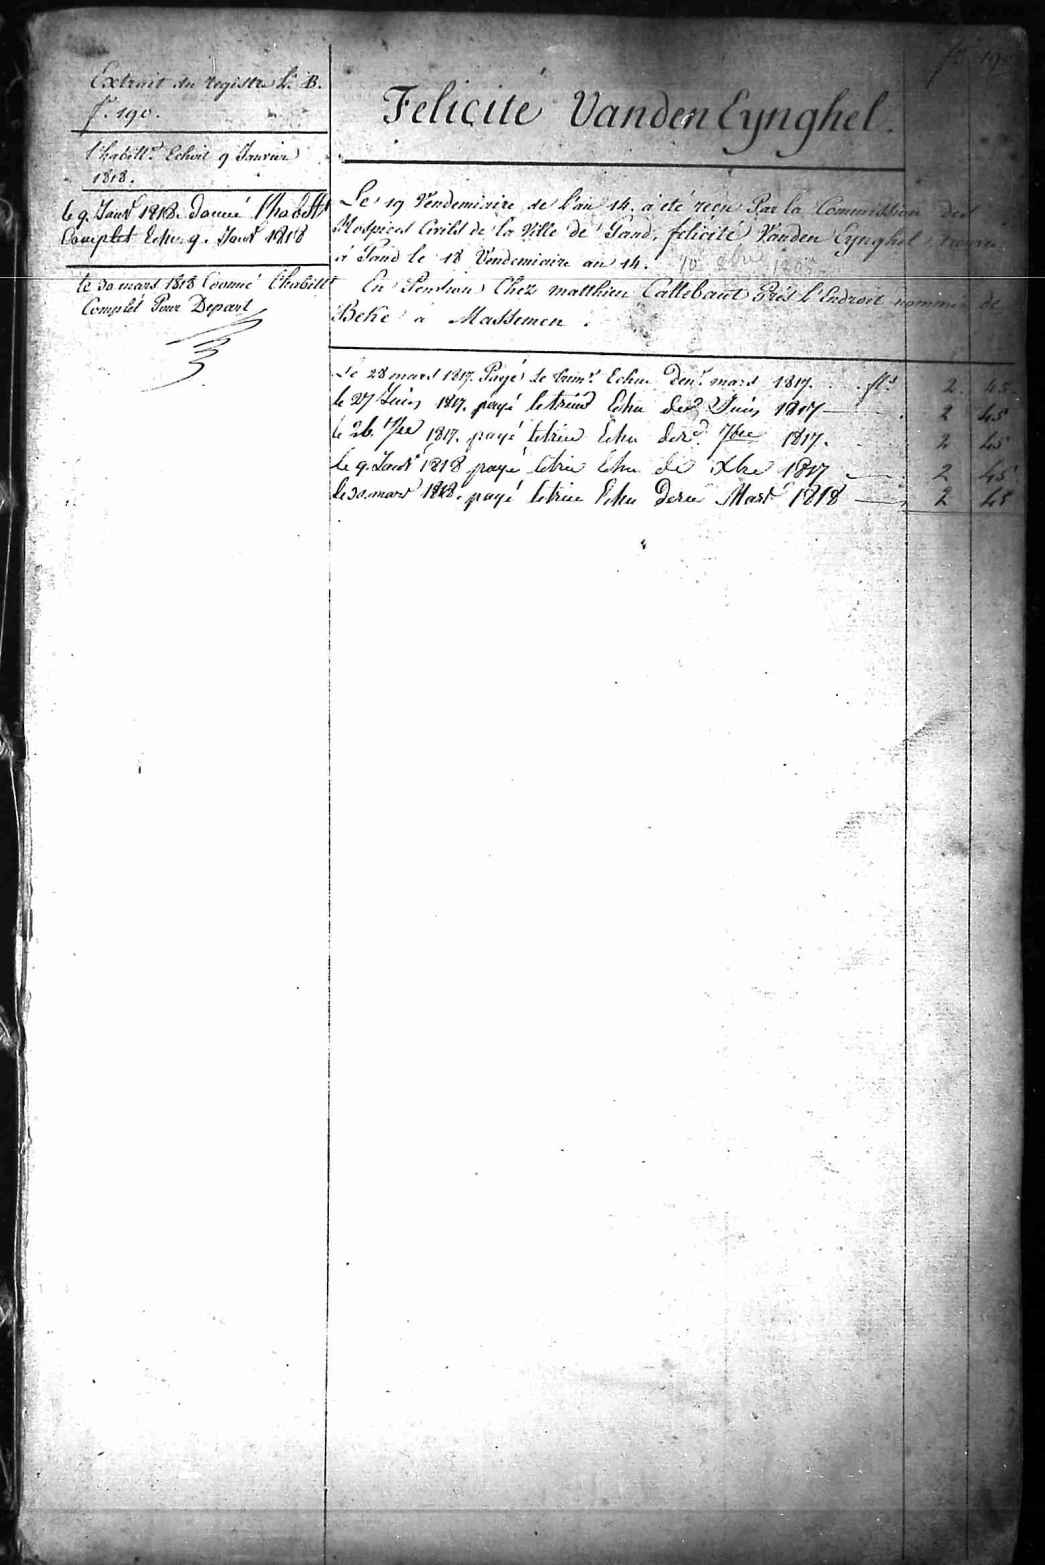 fº 190
Extrait du registre Lª B.
fº. 190.
l'habillt. Echoit 9 Janvier
1818.
le 9. Janvr 1818. donné l'habillt
Complet Echu 9. Janvr 1818
le 30 mars 1818 Donné l'habillt
Complèt Pour Depart
Felicité Vanden Eynghel.
Le 19 Vendemiaire de l'an 14. a été recu Par la Commission des
Hospices Civils de la Ville de Gand, felicité Vanden Eynghel, trouvé
à Gand le 18 Vendemiaire an 14. 10 8bre 1805
En Pension Chez matthieu Callebaut Près l'Endroit nommé de
Beke à Massemen.
Le 28 mars 1817. Payé le trimr. Echu denr. mars 1817. fls 2 45
le 27 Juin 1817. payé le trim Echu der Juin 1817 2 45
le 26. 7bre 1817. payé letrim Echu derr. 7bre 1817. 2 45
le 9. Janvr 1818 payé letrim Echu de Xbre 1817 2 45
le 30. mars 1818. payé letrim Echu Dernr Mars 1818 2 45